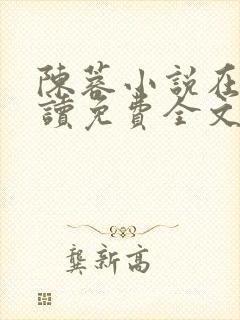 陳蓉小說在
讀免費全文
龔新高